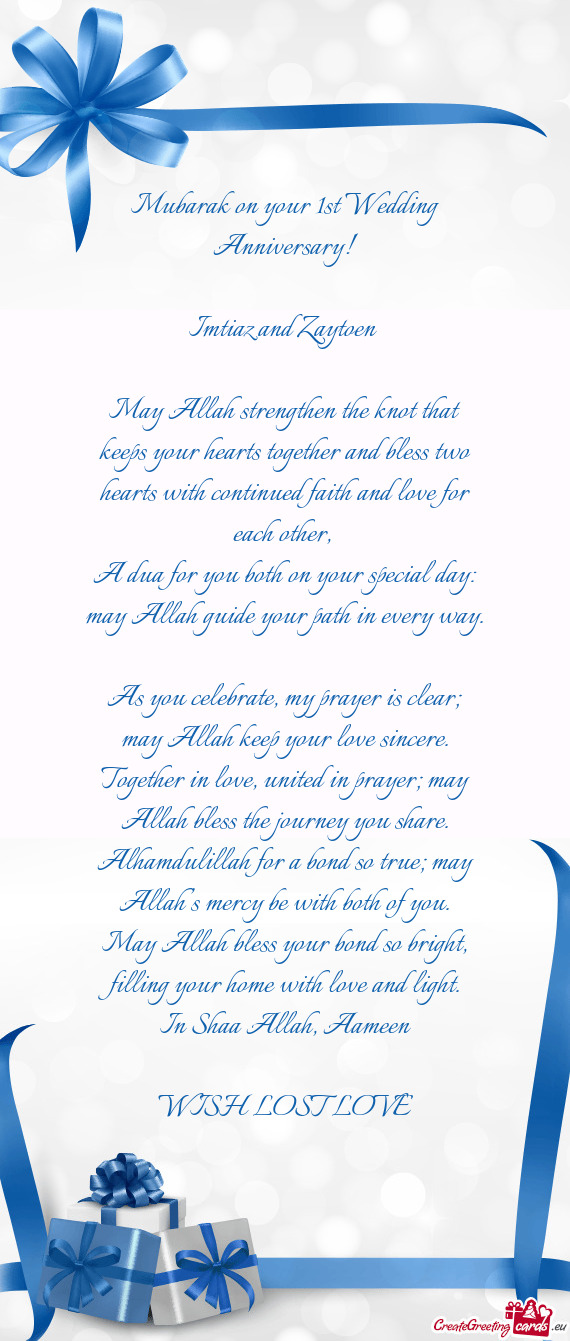 Mubarak on your 1st Wedding
Anniversary!
Imtiaz and Zaytoen
May Allah strengthen the knot that
keeps your hearts together and bless two
hearts with continued faith and love for
each other,
A dua for you both on your special day:
may Allah guide your path in every way.
As you celebrate, my prayer is clear;
may Allah keep your love sincere.
Together in love, united in prayer; may
Allah bless the journey you share.
Alhamdulillah for a bond so true; may
Allah's mercy be with both of you.
May Allah bless your bond so bright,
filling your home with love and light.
In Shaa Allah, Aameen
WISH LOST LOVE
CreateGreeting cards .eu